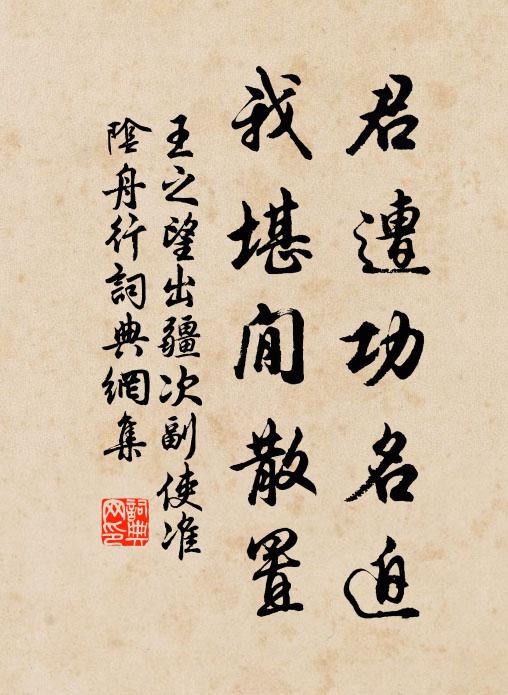 君遭功名迫
我堪閒散置
王之望出疆次副使淮
陰舟行詞典網集
詞典网印